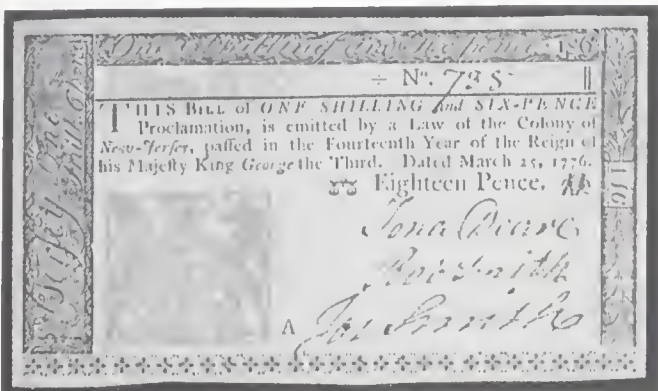 One Shilling and Six pence. 1s6
÷ No. 7385
THIS BILL of ONE SHILLING and SIX-PENCE
Proclamation, is emitted by a Law of the Colony of
New-Jersey, paſſed in the Fourteenth Year of the Reign of
his Majeſty King George the Third. Dated March 25, 1776.
Eighteen Pence.
Jona Deare
Robt Smith
A Jos Smith